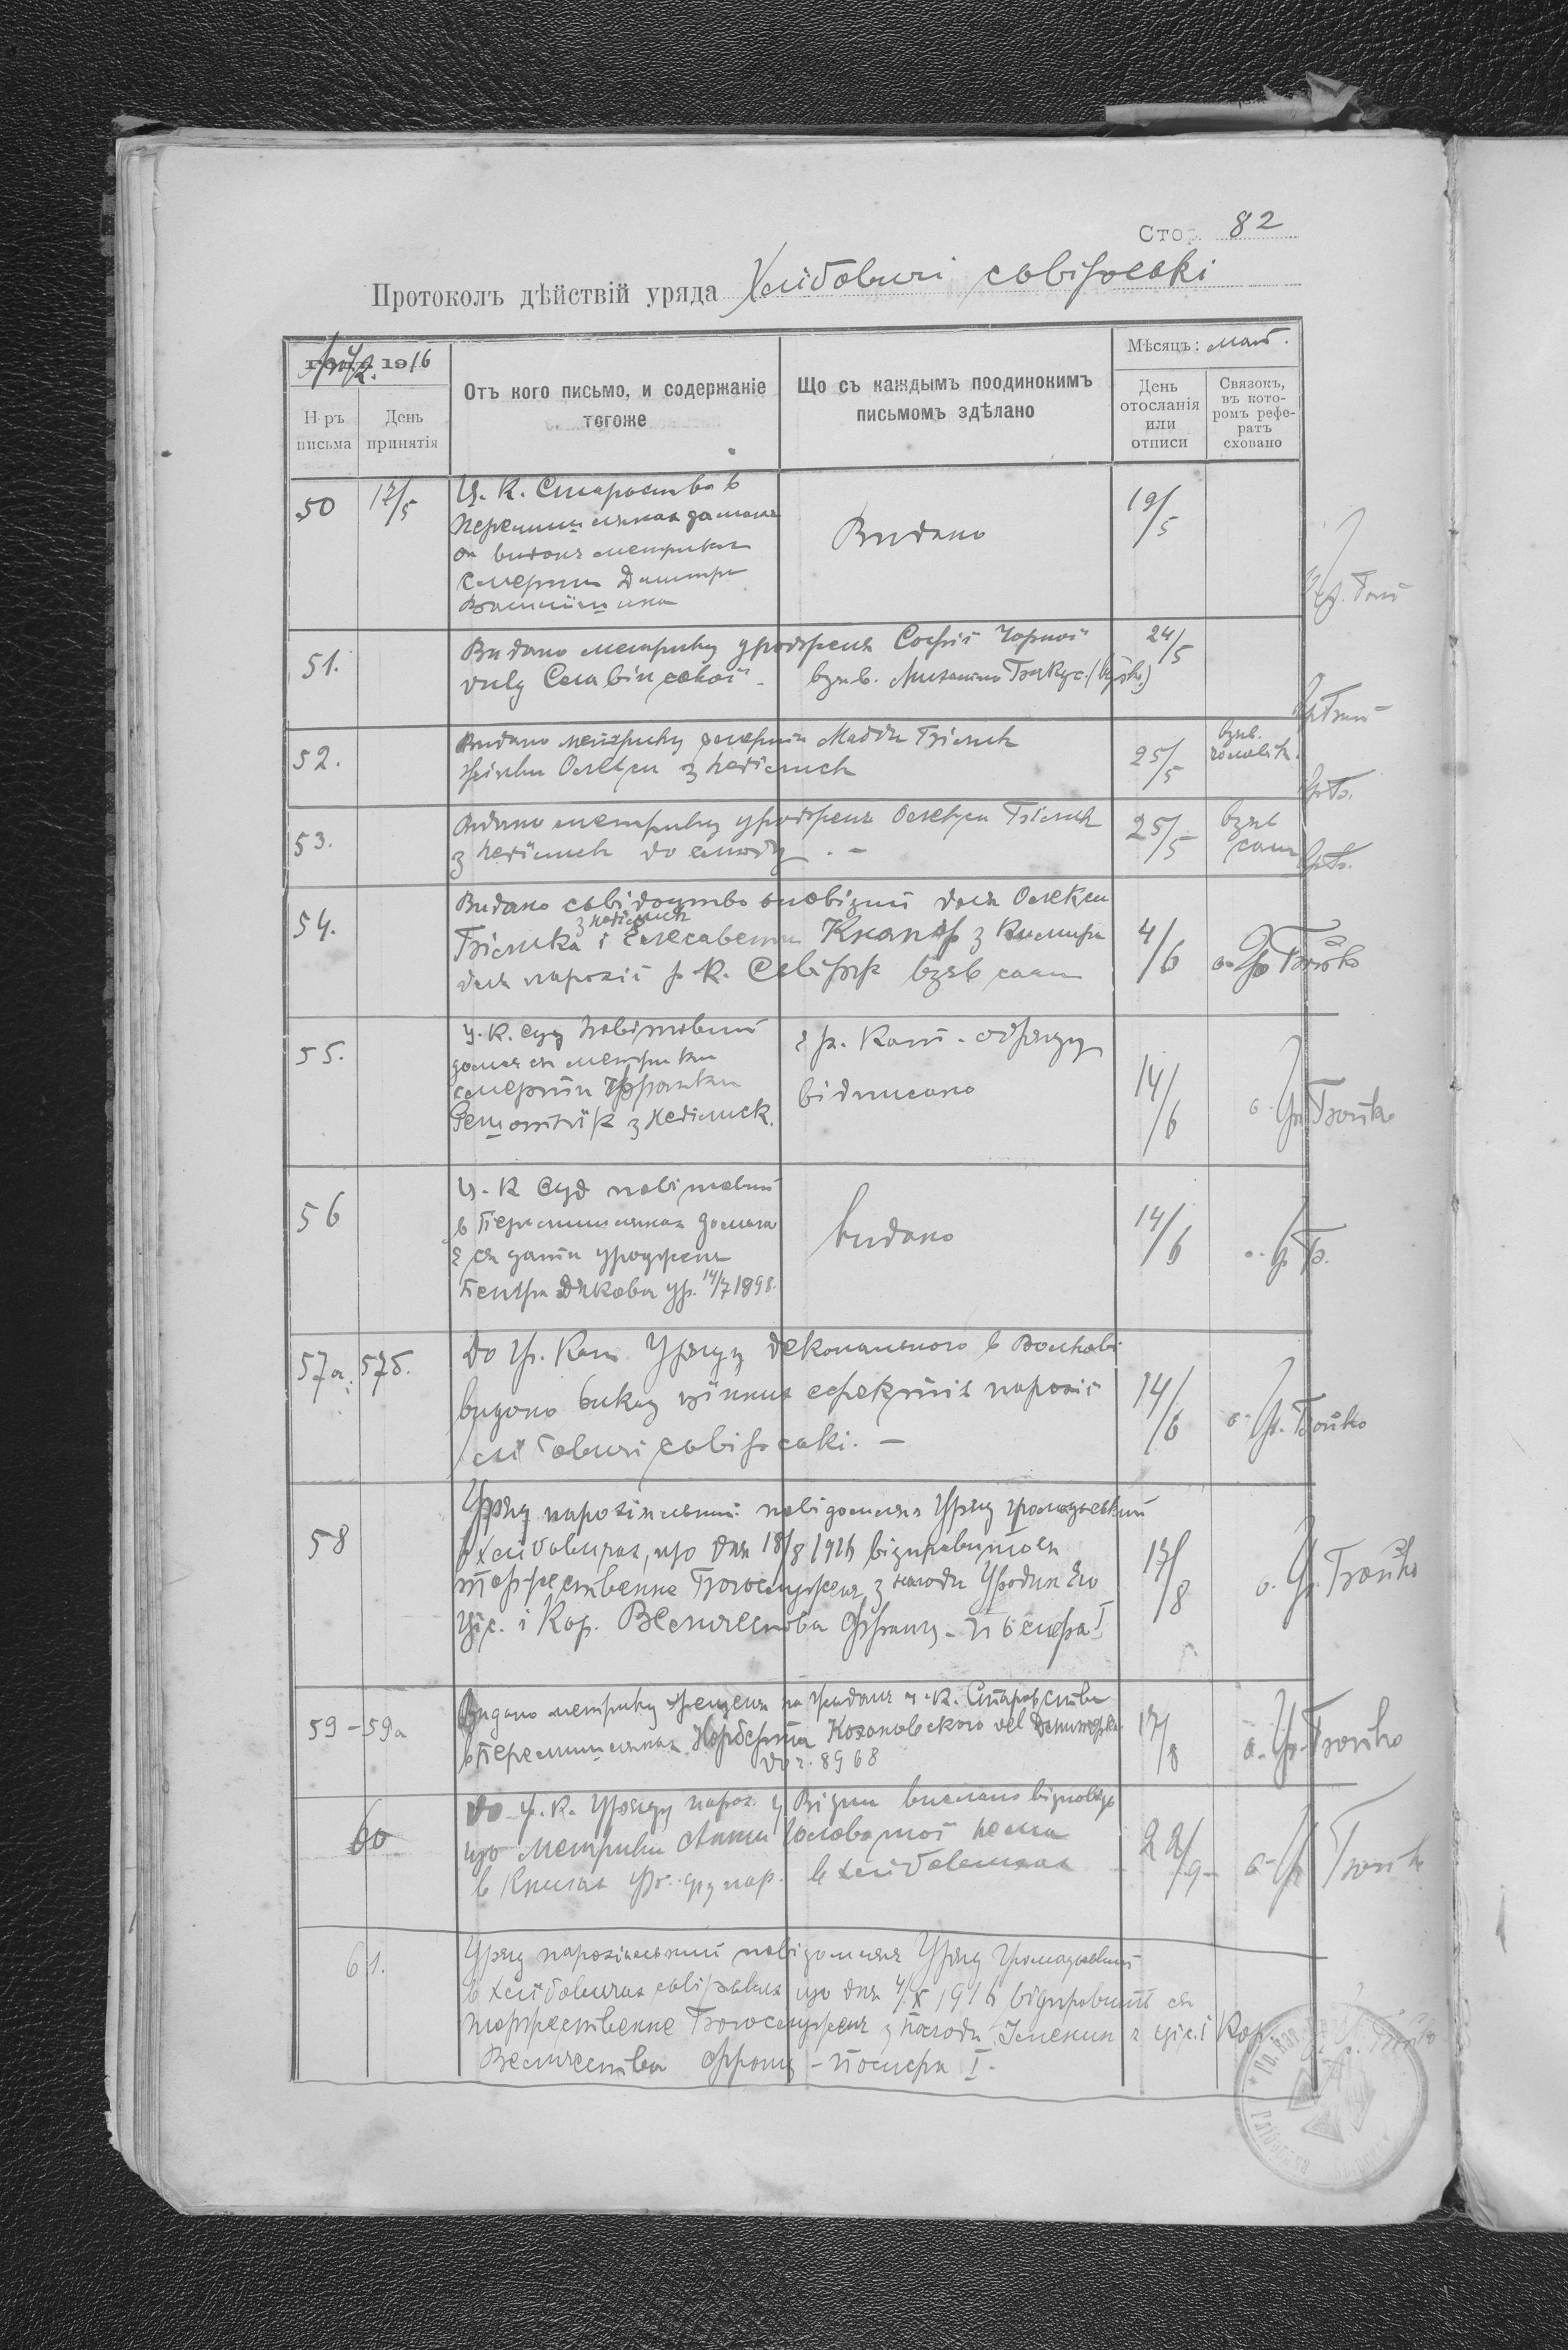 Стор. 82
Протоколъ дѣйствій уряда Хлїбовичі свірскі
1916
Мѣсяцъ: май.
Н-ръ письма
День принятія
Отъ кого письмо, и содержаніе тогоже
Що съ каждымъ поодинокимъ письмом здѣлано
День отосланія или отписи
Связокъ, въ кото-ромъ рефе-ратъ сховано
50 17/5 Ц. К. Староство в
Перемишлянах домага
ся виданя метрики
смерти Дмитра
Видано 19/5
51. Видано метрику уродженя Софії Чорної
vulg взяв. 24/5
52. Видано метрику смерти Магди Бієлик
жінки Олекси з Неділиск 25/5 взяв. чоловік.
53. Видано метрику уродженя Олекси Бієлик
з Неділиск до слюбу . – 25/5 взяв сам
54. Видано свідоцтво оповідий для Олекси
з Неділиск
Бієлика і Єлисавети Кнапф з
для парохії р. к. Свірж взяв сам 4/6 о. Гр. Бойко
55. Ц. К. Суд повітовий
домаг. ся метрики
смерти Франки
з Неділиск.
гр. кат. обряду
відписано 14/6 о. Гр. Бойко
56 Ц. К Суд повітовий
в Перемишлянах домага
є ся дати уродженя
Петра Дякова ур. 14/7 1898.
видано 14/6 о. Гр. Б.
57а; 57б. До Гр. Кат. Уряду деканального в Волкові
видано виказ цінних ефектів парохії
Хлїбовичі свірскі. – 14/6 о. Гр. Бойко
58 Уряд парохіяльний повідомляє Уряд громадський
в Хлїбовичах, що дня 18/8 1916 відправить ся
торжественне Богослуженя з нагоди Уродин Єго
Ціс. і Кор. Величества Франц-Йосифа I. 17/8 о. Гр. Бойко
59 – 59а Видано метрику хрещеня на жаданя ц. к. Староства
в Перемишлянах Норберта Козаковского vel
до ч. 8968 17/8 о. Гр. Бойко
60 До ц. к. Уряду парох. у Візни вислано відповідь
що метрики Анни Головатої нема
в Книгах уряду пар. в Хлїбовичах 22/9 – о. Гр Бойко
61. Уряд парохіяльний повідомляє Уряд Громадський
в Хлїбовичах свірских що дня 4/X 1916 відправить ся
торжественне Богослуженя з нагоди Іменин є ціс. і Кор.
Величества Франц – Йосифа I.